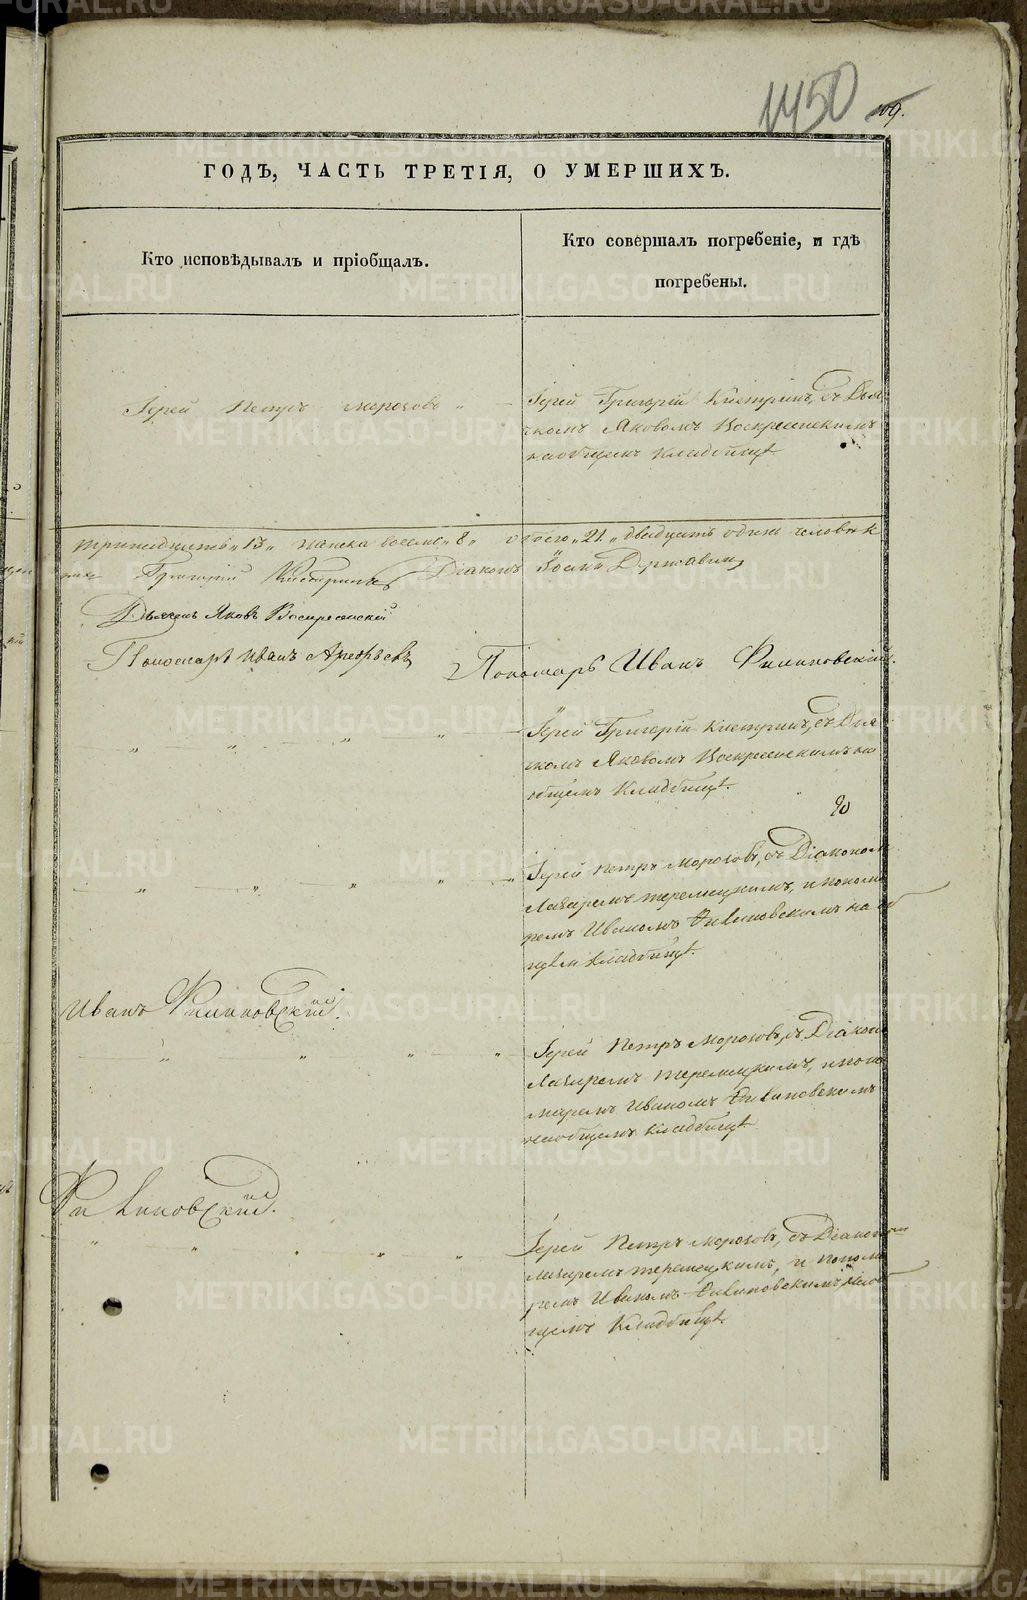 1450 109.
ГОДЪ, ЧАСТЬ ТРЕТІЯ, О УМЕРШИХЪ.
Кто исповѣдывалъ и пріобщалъ.
Кто совершалъ погребеніе, и гдѣ
погребены.
Іерей Петръ Морозовъ
Іерей Григорій Кистринъ, съ Дья
чкомъ Яковомъ Воскресенскимъ
на общемъ Кладбищѣ.
тринадцать „13„ женска восемь „8„ обоего „21„ двадцать одинъ человѣкъ
Григорій Кистринъ Діаконъ Іоаннъ Державинъ
Дьячекъ Яковъ Воскресенскій
Пономарь Иванъ Арефьевъ
Пономарь Иванъ Филиповскій.
Іерей Григорій Кистринъ, съ Дья
чкомъ Яковомъ Воскресенскимъ на
общемъ Кладбищѣ.
Іерей Петръ Морозовъ, съ Діакономъ
Лазаремъ и понома
ремъ Иваномъ Филиповскимъ на об
щемъ Кладбищѣ.
Иванъ Филиповскій.
Іерей Петръ Морозовъ, съ Діакон
Лазаремъ и поно
маремъ Иваномъ Филиповскимъ
на общемъ Кладбищѣ
Филиповскій.
Іерей Петръ Морозовъ, съ Діаконом
Лазаремъ и понома
ремъ Иваномъ Филиповскимъ на об
щемъ Кладбищѣ.
METRIKI.GASO-URAL.RU